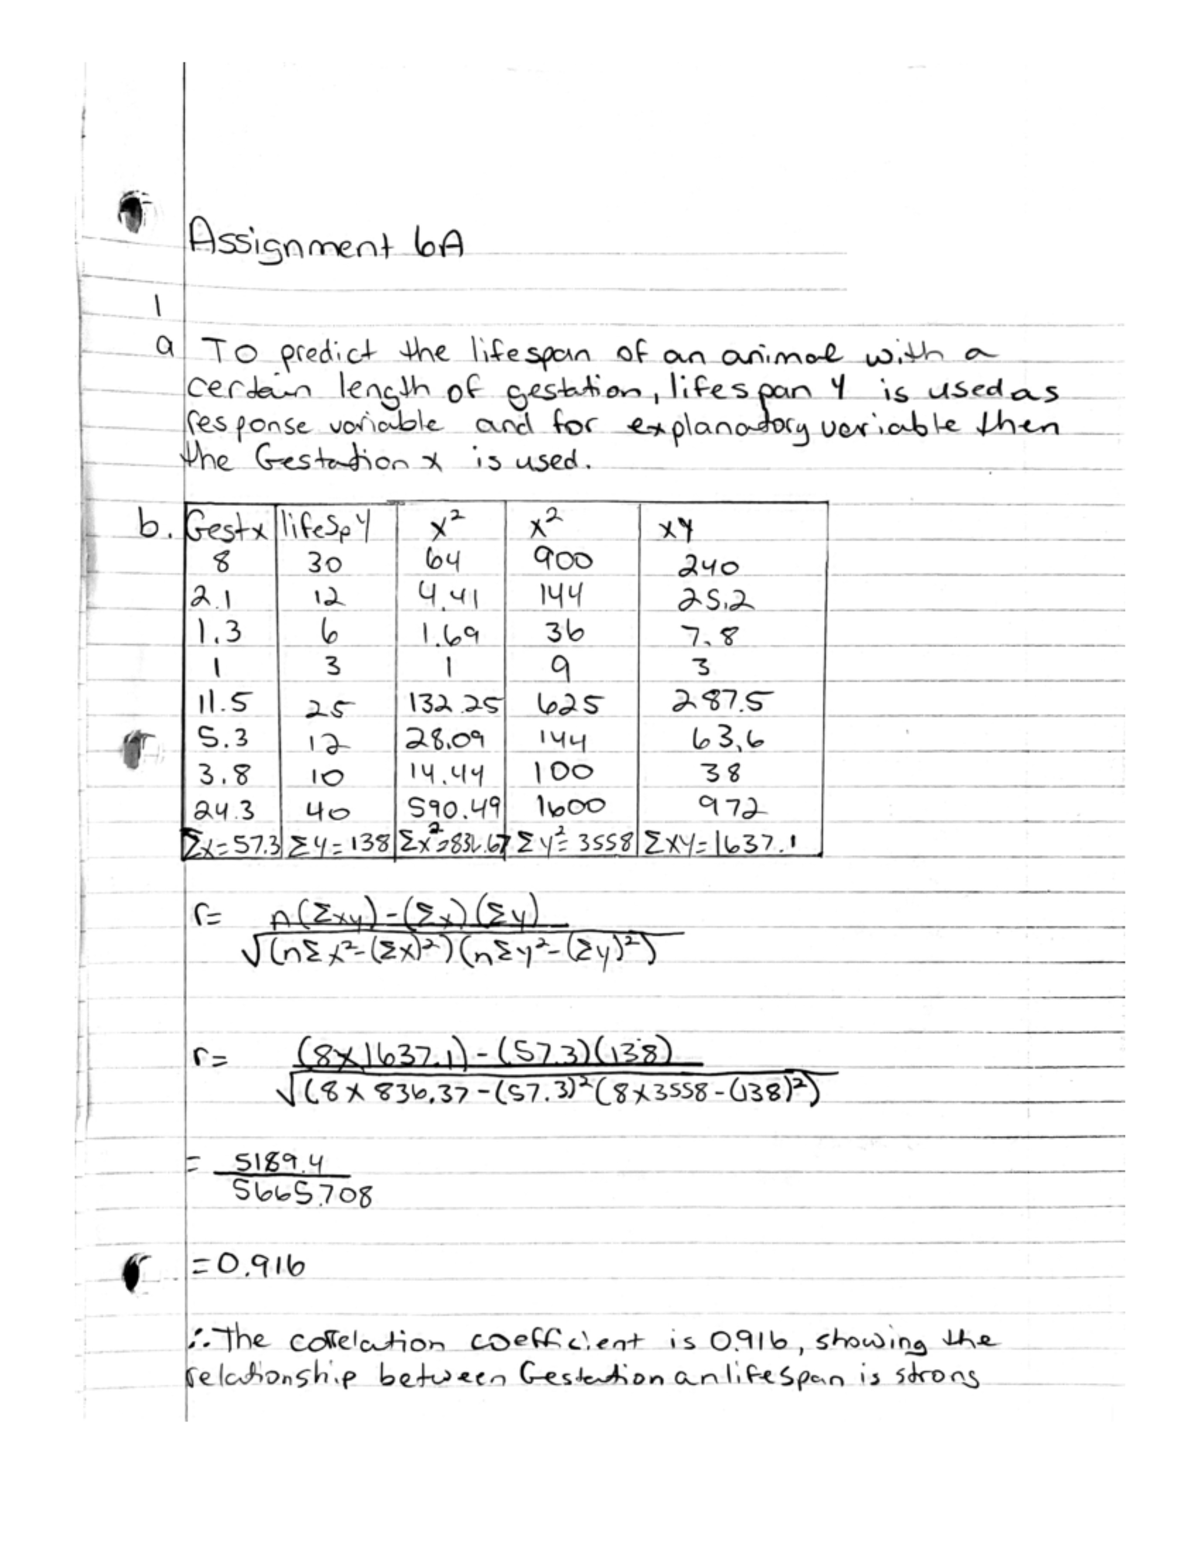 Assignment 6A
1
a To predict the lifespan of an animal with a
certain length of gestation, lifespan Y is used as
response variable and for explanatory variable then
the Gestation x is used.
b. Gestx lifeSpY x² x² xy
8 30 64 900 240
2.1 12 4.41 144 25.2
1.3 6 1.69 36 7.8
1 3 1 9 3
11.5 25 132.25 625 287.5
5.3 12 28.09 144 63,6
3.8 10 14.44 100 38
24.3 40 590.49 1600 972
Σx=57.3 Σy=138 Σx²=836.67 Σy²=3558 Σxy=1637.1
r= n(Σxy)-(Σx)(Σy)
√(nΣx²-(Σx)²)(nΣy²-(Σy)²)
r= (8x1637.1)-(57.3)(138)
√(8x836.37-(57.3)²(8x3558-(138)²)
= 5189.4
5665.708
=0.916
∴The correlation coefficient is 0.916, showing the
relationship between Gestation an lifespan is strong